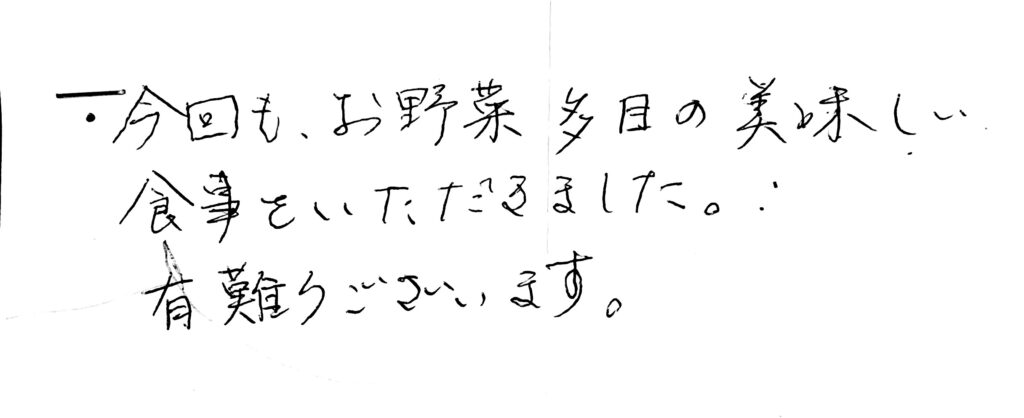 ・今回も、お野菜多目の美味しい
食事をいただきました。
有難うございます。